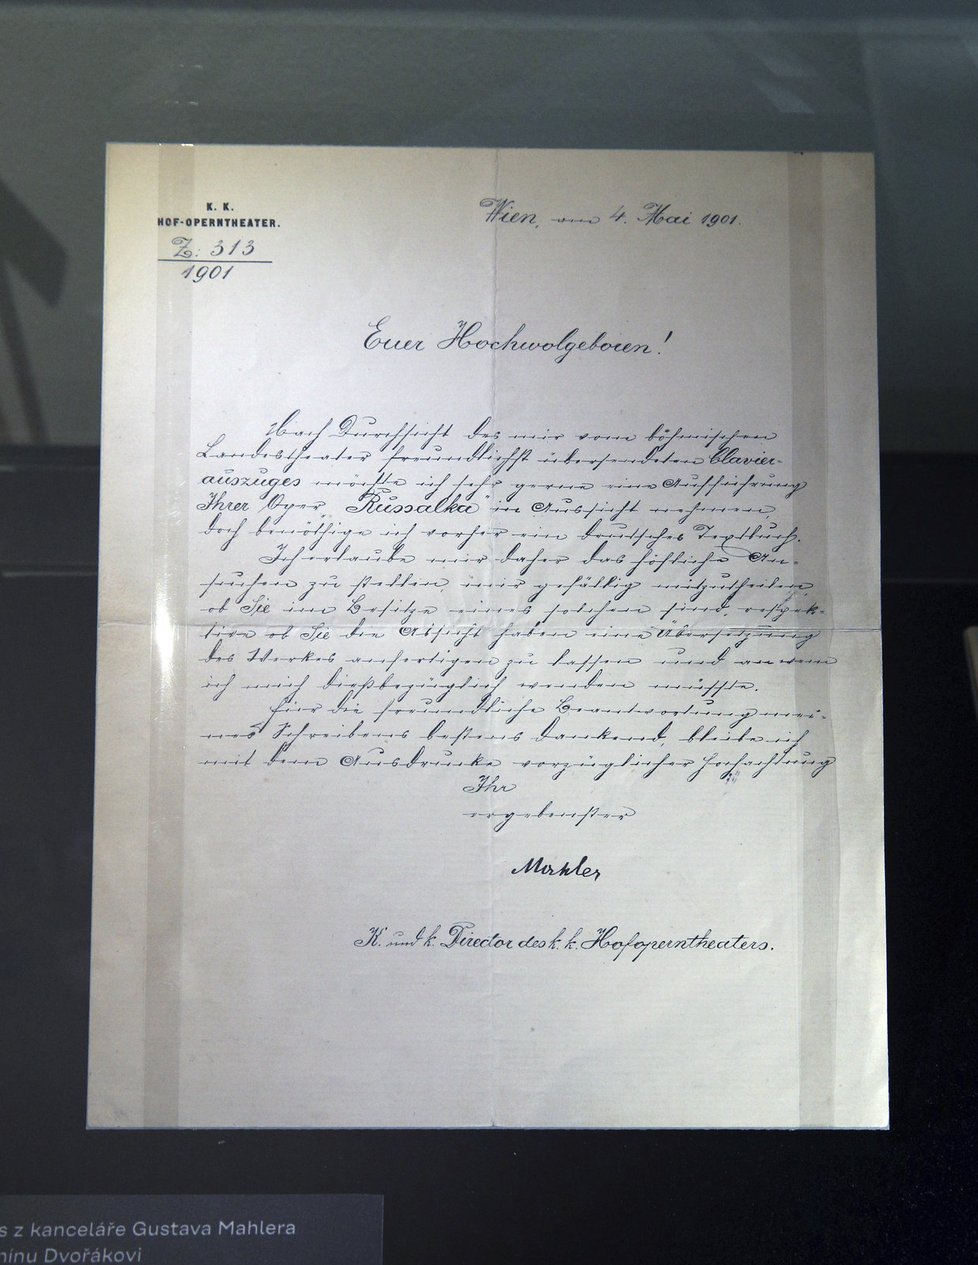 K. K.
HOF-OPERNTHEATER.
Z: 313
1901
Wien, am 4. Mai 1901.
Euer Hochwolgeboren!
Nach Durchsicht des mir vom böhmischen
Landestheater freundlichst übersendeten Clavier-
auszuges möchte ich sehr gerne eine Aufführung
Ihrer Oper „Russalka" in Aussicht nehmen
doch benöthige ich vorher ein deutsches Textbuch.
Ich erlaube mir daher das höfliche An-
suchen zu stellen, mir gefällig mitzutheilen,
ob Sie im Besitze eines solchen sind, respek-
tive ob Sie die Absicht haben eine Übersetzung
des Werkes anfertigen zu lassen und an wen
ich mich dießbezüglich wenden müsste.
Für die freundliche Beantwortung mei-
nes Schreibens bestens dankend, bleibe ich
mit dem Ausdrucke vorzüglicher Hochachtung
Ihr
ergebenster
Mahler
K. und k. Director des k. k. Hofoperntheaters.
s z kanceláře Gustava Mahlera
nínu Dvořákovi